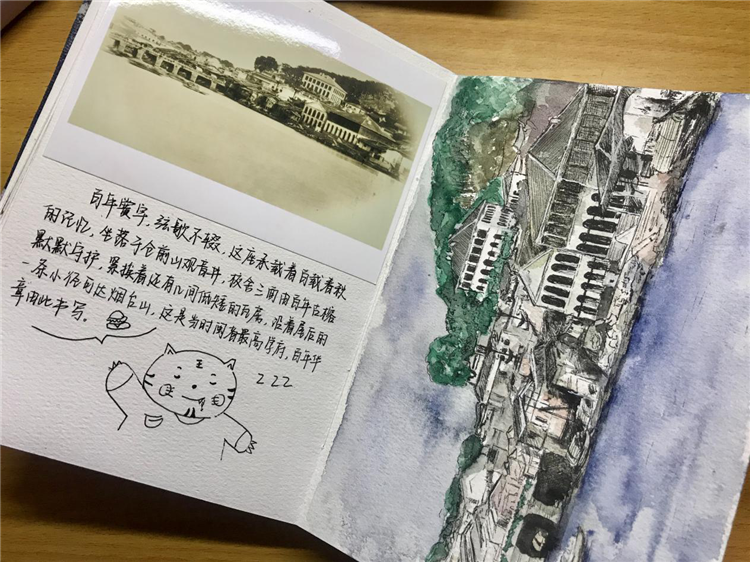 百年黉字，弦歌不辍，这座承载着百载春秋
的记忆，坐落于仓前山观音井，校舍三面由百年古榕
默默守护，紧接着还有几间低矮的瓦房，沿着屋后的
一条小径可达烟台山，这是当时闽省最高学府，百年华
章由此书写。
王
2 2 2